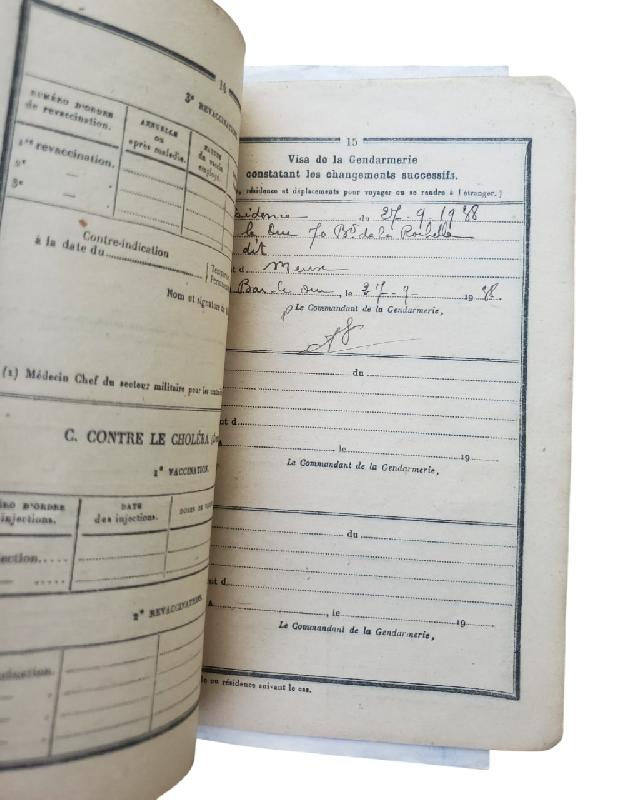 14
3e REVACCINATION
NUMÉRO D'ORDRE de revaccination.
ANNUELLE ou après maladie.
NATURE du vaccin employé.
1re revaccination.
2e —
3e —
Contre-indication
à la date du
Nom et signature
(1) Médecin Chef du secteur militaire pour les
C. CONTRE LE CHOLÉRA
1e VACCINATION.
D'ORDRE injections.
DATE des injections.
2e REVACCINATION.
15
Visa de la Gendarmerie
constatant les changements successifs.
résidence et déplacements pour voyager ou se rendre à l'étranger.)
du 27-9-1938
le Duc 70 Bd de la Rochelle
dit
t d. Meuse
Bar-le-Duc, le 27-9 1938.
Le Commandant de la Gendarmerie,
du
t d.
, le 19
Le Commandant de la Gendarmerie,
du
nt d.
A , le 19
Le Commandant de la Gendarmerie,
ou résidence suivant le cas.